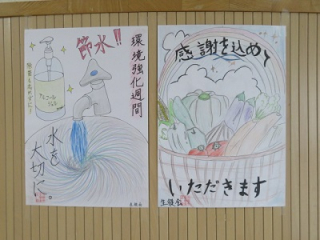 節水!!
環境強化週間
水を
大切に
生徒会
感謝を込めて
いただきます
生徒会